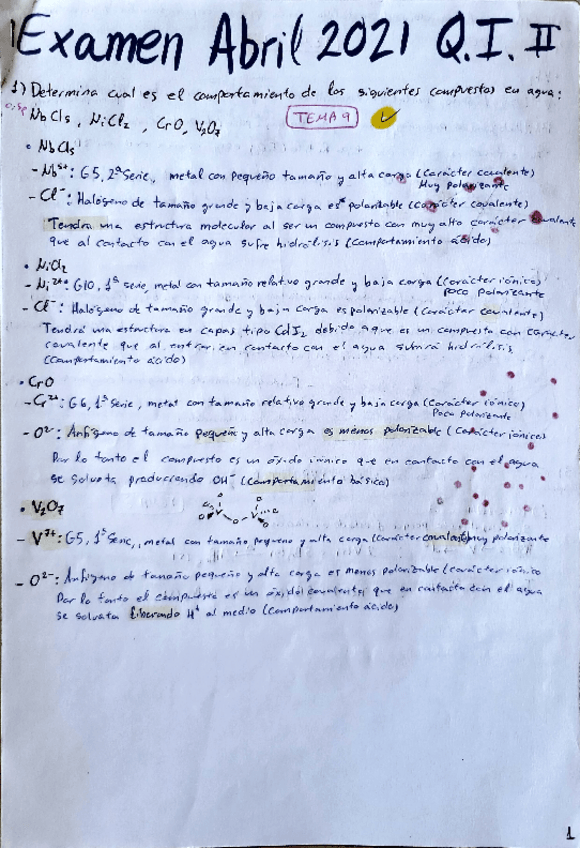 Examen Abril 2021 Q.I. II
1) Determina cual es el comportamiento de los siguientes compuestos en agua:
NbCl5, NiCl2, CrO, V2O7
TEMA 9
• NbCl5
- Nb5+: G5, 2ª Serie, metal con pequeño tamaño y alta carga (Carácter covalente)
Muy polarizante
- Cl-: Halógeno de tamaño grande y baja carga es polarizable (Carácter covalente)
Tendrá una estructura molecular al ser un compuesto con muy alto carácter covalente
que al contacto con el agua sufre hidrólisis (Comportamiento ácido)
• NiCl2
- Ni2+: G10, 1ª serie, metal con tamaño relativo grande y baja carga (Carácter iónico)
poco polarizante
- Cl-: Halógeno de tamaño grande y baja carga es polarizable (Carácter covalente)
Tendrá una estructura en capas tipo CdI2 debido a que es un compuesto con carácter
covalente que al entrar en contacto con el agua sufrirá hidrólisis
(Comportamiento ácido)
• CrO
- Cr2+: G6, 1ª Serie, metal con tamaño relativo grande y baja carga (Carácter iónico)
Poco polarizante
- O2-: Anfígeno de tamaño pequeño y alta carga es menos polarizable (Carácter iónico)
Por lo tanto el compuesto es un óxido iónico que en contacto con el agua
se solvata produciendo OH- (Comportamiento básico)
• V2O7
- V7+: G5, 1ª Serie, metal con tamaño pequeño y alta carga (Carácter covalente) muy polarizante
- O2-: Anfígeno de tamaño pequeño y alta carga es menos polarizable (carácter iónico
Por lo tanto el compuesto es un óxido covalente que en contacto con el agua
se solvata liberando H+ al medio (Comportamiento ácido)
1